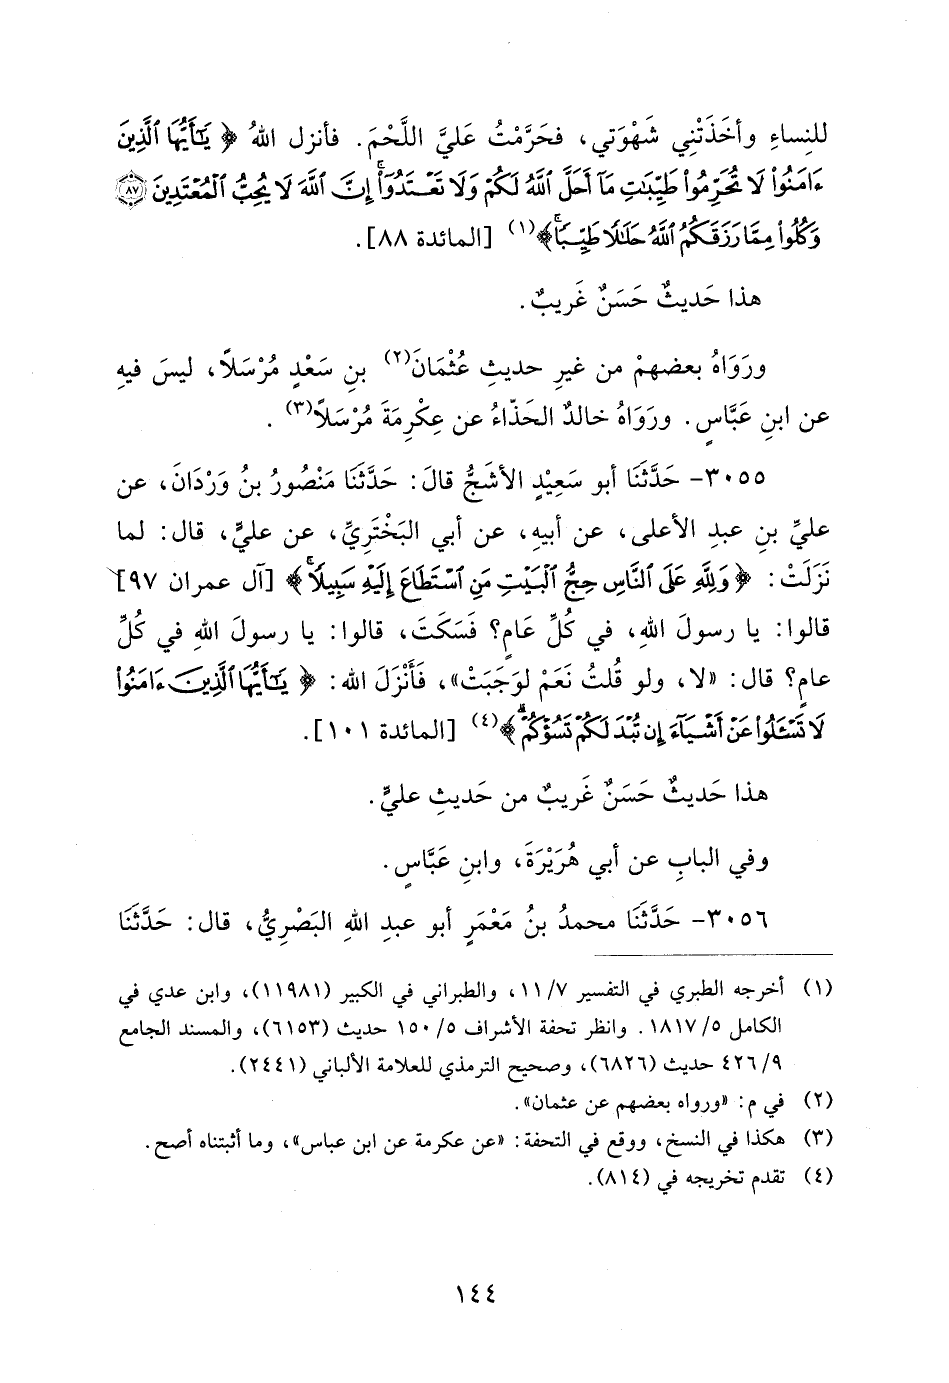 للنِساءِ وأخَذَتْنِي شَهْوَتي، فحَرَّمْتُ عَليَّ اللَّحْمَ. فأنزل اللهُ ﴿ يَٰٓأَيُّهَا ٱلَّذِينَ
ءَامَنُوا۟ لَا تُحَرِّمُوا۟ طَيِّبَٰتِ مَآ أَحَلَّ ٱللَّهُ لَكُمْ وَلَا تَعْتَدُوٓا۟ۚ إِنَّ ٱللَّهَ لَا يُحِبُّ ٱلْمُعْتَدِينَ ﴿٨٧﴾
وَكُلُوا۟ مِمَّا رَزَقَكُمُ ٱللَّهُ حَلَٰلًا طَيِّبًاۚ﴾(١) [المائدة ٨٨].
هذا حَديثٌ حَسَنٌ غَريبٌ.
ورَوَاهُ بعضهمْ من غيرِ حديثِ عُثْمَانَ(٢) بنِ سَعْدٍ مُرْسَلاً، ليسَ فيهِ
عن ابنِ عَبَّاسٍ. ورَوَاهُ خالدٌ الحَذّاءُ عن عِكْرِمَةَ مُرْسَلاً(٣).
٣٠٥٥- حَدَّثَنَا أبو سَعِيْدٍ الأشَجُّ قالَ: حَدَّثَنَا مَنْصُورُ بنُ وَرْدَانَ، عن
عليِّ بنِ عبدِ الأعلى، عن أبيهِ، عن أبي البَخْتَريِّ، عن عليٍّ، قال: لما
نَزَلَتْ: ﴿ وَلِلَّهِ عَلَى ٱلنَّاسِ حِجُّ ٱلْبَيْتِ مَنِ ٱسْتَطَاعَ إِلَيْهِ سَبِيلًاۚ ﴾ [آل عمران ٩٧]
قالوا: يا رسولَ اللهِ، في كُلِّ عَامٍ؟ فَسَكَتَ، قالوا: يا رسولَ اللهِ في كُلِّ
عامٍ؟ قال: «لا، ولو قُلتُ نَعَمْ لوَجَبَتْ»، فَأَنْزَلَ الله: ﴿ يَٰٓأَيُّهَا ٱلَّذِينَ ءَامَنُوا۟
لَا تَسْـَٔلُوا۟ عَنْ أَشْيَآءَ إِن تُبْدَ لَكُمْ تَسُؤْكُمْ ﴾(٤) [المائدة ١٠١].
هذا حَديثٌ حَسَنٌ غَريبٌ من حَديثِ عليٍّ.
وفي البابِ عن أبي هُرَيْرَةَ، وابنِ عَبَّاسٍ.
٣٠٥٦- حَدَّثَنَا محمدُ بنُ مَعْمَرٍ أبو عبدِ اللهِ البَصْرِيُّ، قال: حَدَّثَنَا
(١) أخرجه الطبري في التفسير ١١/٧، والطبراني في الكبير (١١٩٨١)، وابن عدي في
الكامل ١٨١٧/٥. وانظر تحفة الأشراف ١٥٠/٥ حديث (٦١٥٣)، والمسند الجامع
٤٢٦/٩ حديث (٦٨٢٦)، وصحيح الترمذي للعلامة الألباني (٢٤٤١).
(٢) في م: «ورواه بعضهم عن عثمان».
(٣) هكذا في النسخ، ووقع في التحفة: «عن عكرمة عن ابن عباس»، وما أثبتناه أصح.
(٤) تقدم تخريجه في (٨١٤).
١٤٤